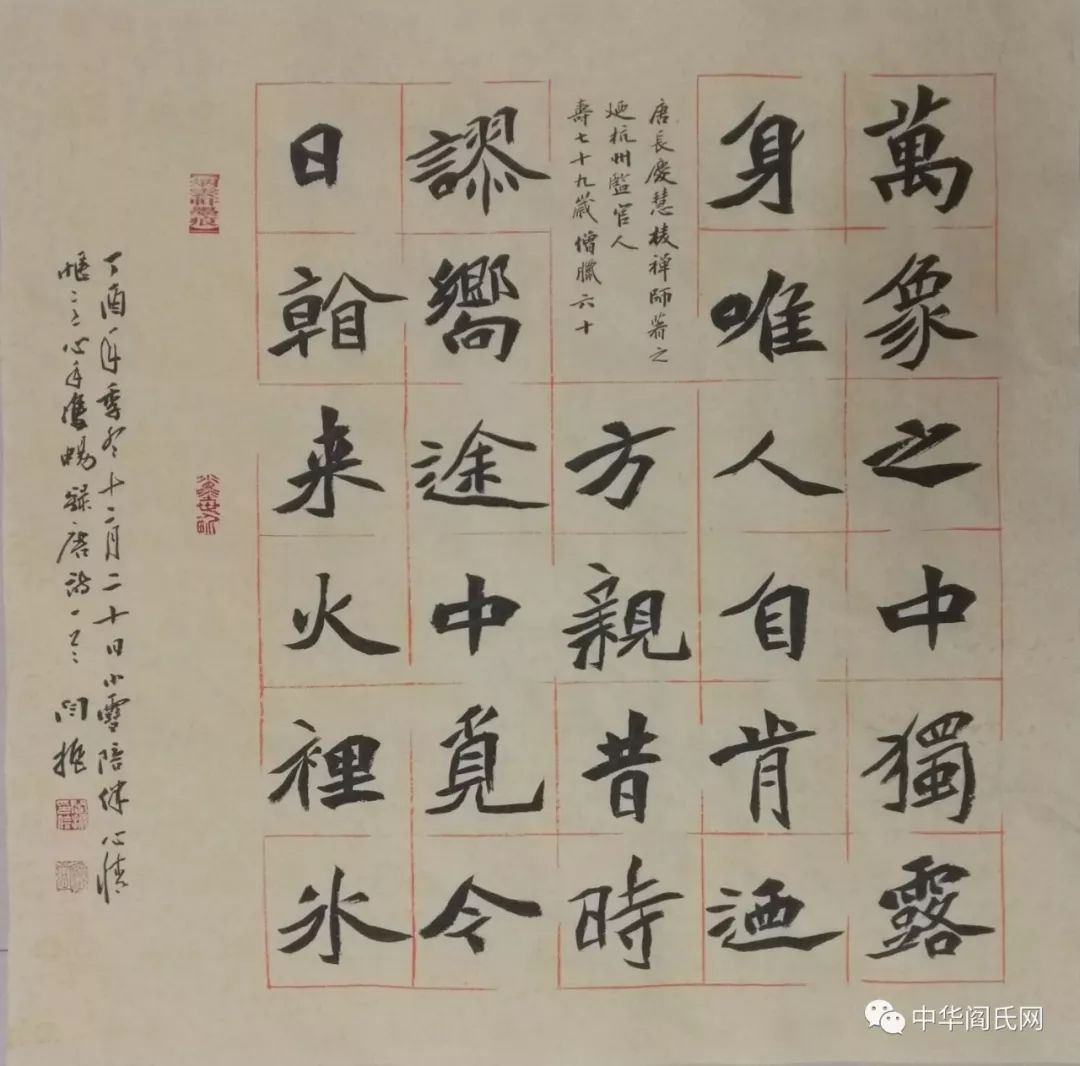 萬象之中獨露
身唯人自肯迺
唐長慶慧棱禅師著之
杭州鹽官人
壽七十九歲僧臘六十
方親昔時
謬嚮途中覓令
日来火裡冰
丁酉年季冬十二月二十日小雪陪伴心情
心手雙暢錄唐詩一首 閆振
中华阎氏网